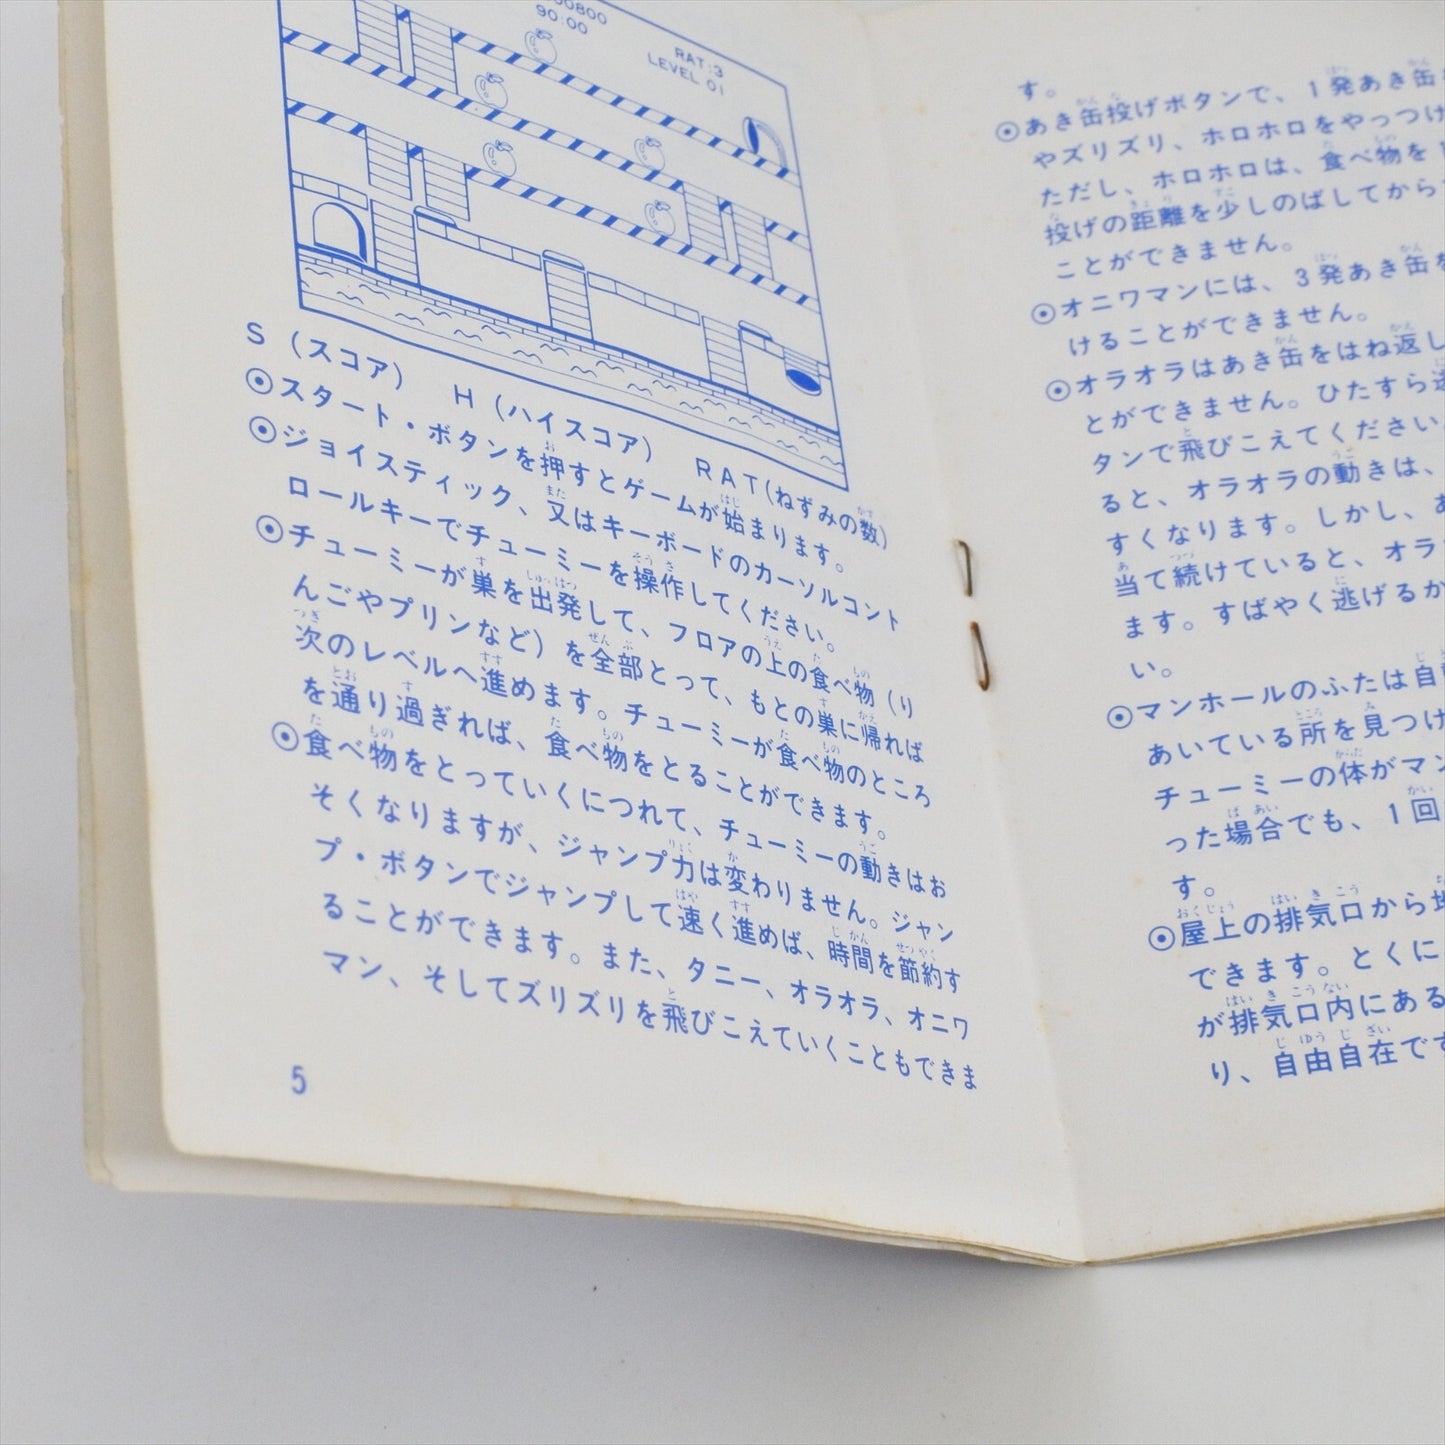 00800
90:00
RAT:3
LEVEL 01
S(スコア) H(ハイスコア) RAT(ねずみの数)
◉スタート・ボタンを押すとゲームが始まります。
◉ジョイスティック、又はキーボードのカーソルコント
ロールキーでチューミーを操作してください。
◉チューミーが巣を出発して、フロアの上の食べ物(り
んごやプリンなど)を全部とって、もとの巣に帰れば
次のレベルへ進めます。チューミーが食べ物のところ
を通り過ぎれば、食べ物をとることができます。
◉食べ物をとっていくにつれて、チューミーの動きはお
そくなりますが、ジャンプ力は変わりません。ジャン
プ・ボタンでジャンプして速く進めば、時間を節約す
ることができます。また、タニー、オラオラ、オニワ
マン、そしてズリズリを飛びこえていくこともできま
5
す。
◉あき缶投げボタンで、1発あき缶
やズリズリ、ホロホロをやっつけ
ただし、ホロホロは、食べ物を
投げの距離を少しのばしてから
ことができません。
◉オニワマンには、3発あき缶を
けることができません。
◉オラオラはあき缶をはね返し
とができません。ひたすら
タンで飛びこえてください
ると、オラオラの動きは、
すくなります。しかし、
当て続けていると、オラ
ます。すばやく逃げるか
い。
◉マンホールのふたは自
あいている所を見つけ
チューミーの体がマン
った場合でも、1回
す。
◉屋上の排気口から
できます。とくに
が排気口内にある
り、自由自在で